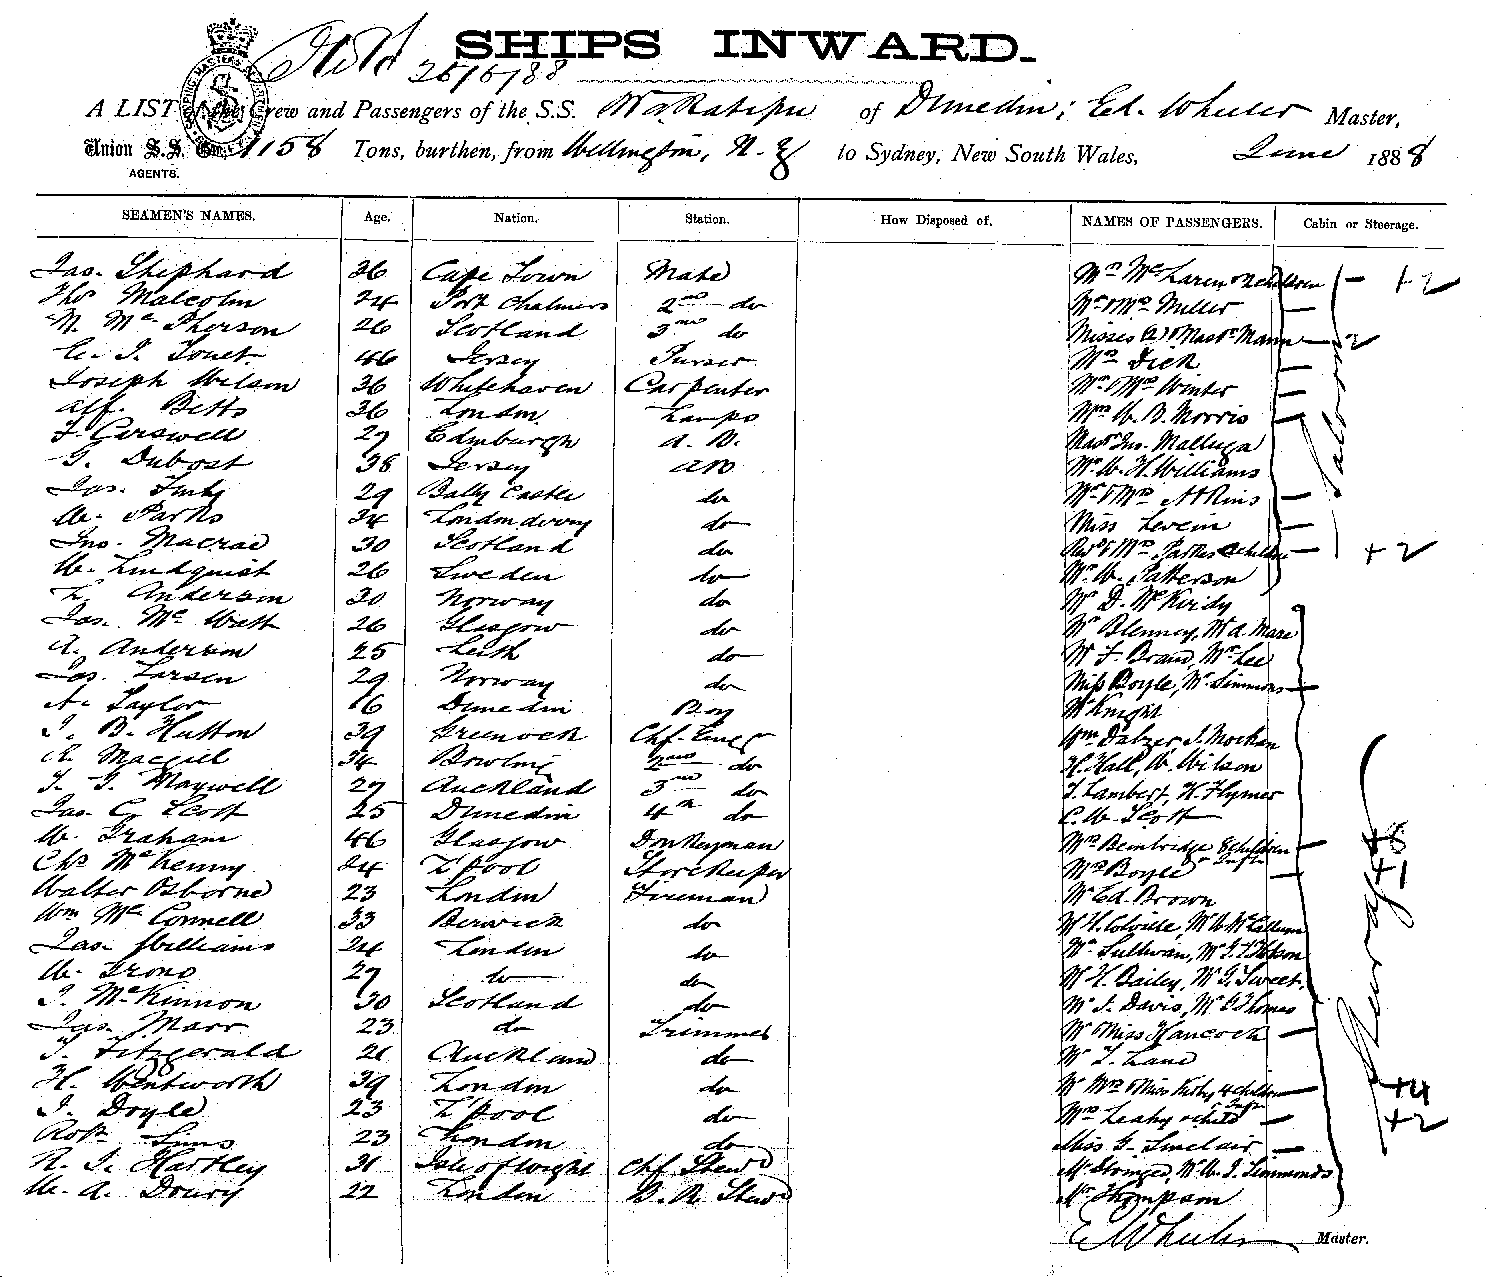 SHIPS INWARD.
25/6/88
A LIST of the Crew and Passengers of the S.S. Wakatipu of Dunedin; Ed. Wheeler Master,
Union S.S. Co. 1158 Tons, burthen, from Wellington, N.Z to Sydney, New South Wales, June 1888
AGENTS.
SEAMEN'S NAMES. Age. Nation. Station. How Disposed of. NAMES OF PASSENGERS. Cabin or Steerage.
Jas. Shephard 36 Cape Town Mate Mrs McLaren & 2 children +2
Thos Malcolm 24 Port Chalmers 2nd do Mr & Mrs Miller
N. McPherson 26 Scotland 3rd do Misses (2) & Mastr Mann 2
E. J. Touet 46 Jersey Purser Mrs Dick
Joseph Wilson 36 Whitehaven Carpenter Mr & Mrs Winter
Alf. Betts 36 London Lamps Mrs W. B. Morris
F. Cerswell 27 Edinburgh A. B. Mastr Jno. Malluga
G. Dubost 38 Jersey AB Mr W. H. Williams
Jas. 29 Bally Castle do Mr & Mrs Atkins
W. Parks 34 Londonderry do Miss Levein
Jno. Macrae 30 Scotland do Revd & Mrs Parkes 2 children +2
W. Lindquist 26 Sweden do Mr W. Patterson
L. Anderson 30 Norway do Mr D. McKirdy
Jas. McWatt 26 Glasgow do Mr Blenney, Mr A. Mare
A. Anderson 25 Leith do Mr F. Brand, Mr Lee
Jas. Larsen 29 Norway do Miss Boyle, Mr Simmons
A. Taylor 16 Dunedin Boy Mr Knight
J. B. Hutton 39 Greenock Chf. Engr Wm Dalzer, J. Mockan
E. Macgill 34 Bowling 2nd do H. Hall, W. Wilson
T. J. Maxwell 27 Auckland 3rd do J. Lambert, H. Flymer
Jas. C. Scott 25 Dunedin 4th do C. W. Scott
W. Graham 46 Glasgow Donkeyman Mrs Bembridge 8 children +8
Chs McKenny 24 L'pool Storekeeper Mrs Boyle & Inft +1
Walter Osborne 23 London Fireman Mr Ed. Brown
Wm McConnell 33 Berwick do Mr H. Colville, Mr W. McCallum
Jas. Williams 24 London do Mr Sullivan, Mr
W. Grono 27 do do Mr H. Bailey, Mr G. Sweet.
J. McKinnon 30 Scotland do Mr J. Davis, Mr C Thomes
Jas. Marr 23 do Trimmer Mr Miss Hancock
T. Fitzgerald 21 Auckland do Mr T. Lane
H. Wentworth 39 London do Mr Mrs & Miss Kirby 4 children +4
J. Doyle 23 L'pool do Mrs Leahy & child & Inft +2
Robt 23 London do Miss G. Sinclair
R. J. Hartley 31 Isle of Wight Chf. Stewd Mr Stonged, Mr W. J. Simmonds
W. A. Drury 22 London B. R. Stewd Mr Thompson
Saloon
Steerage
E Wheeler Master.